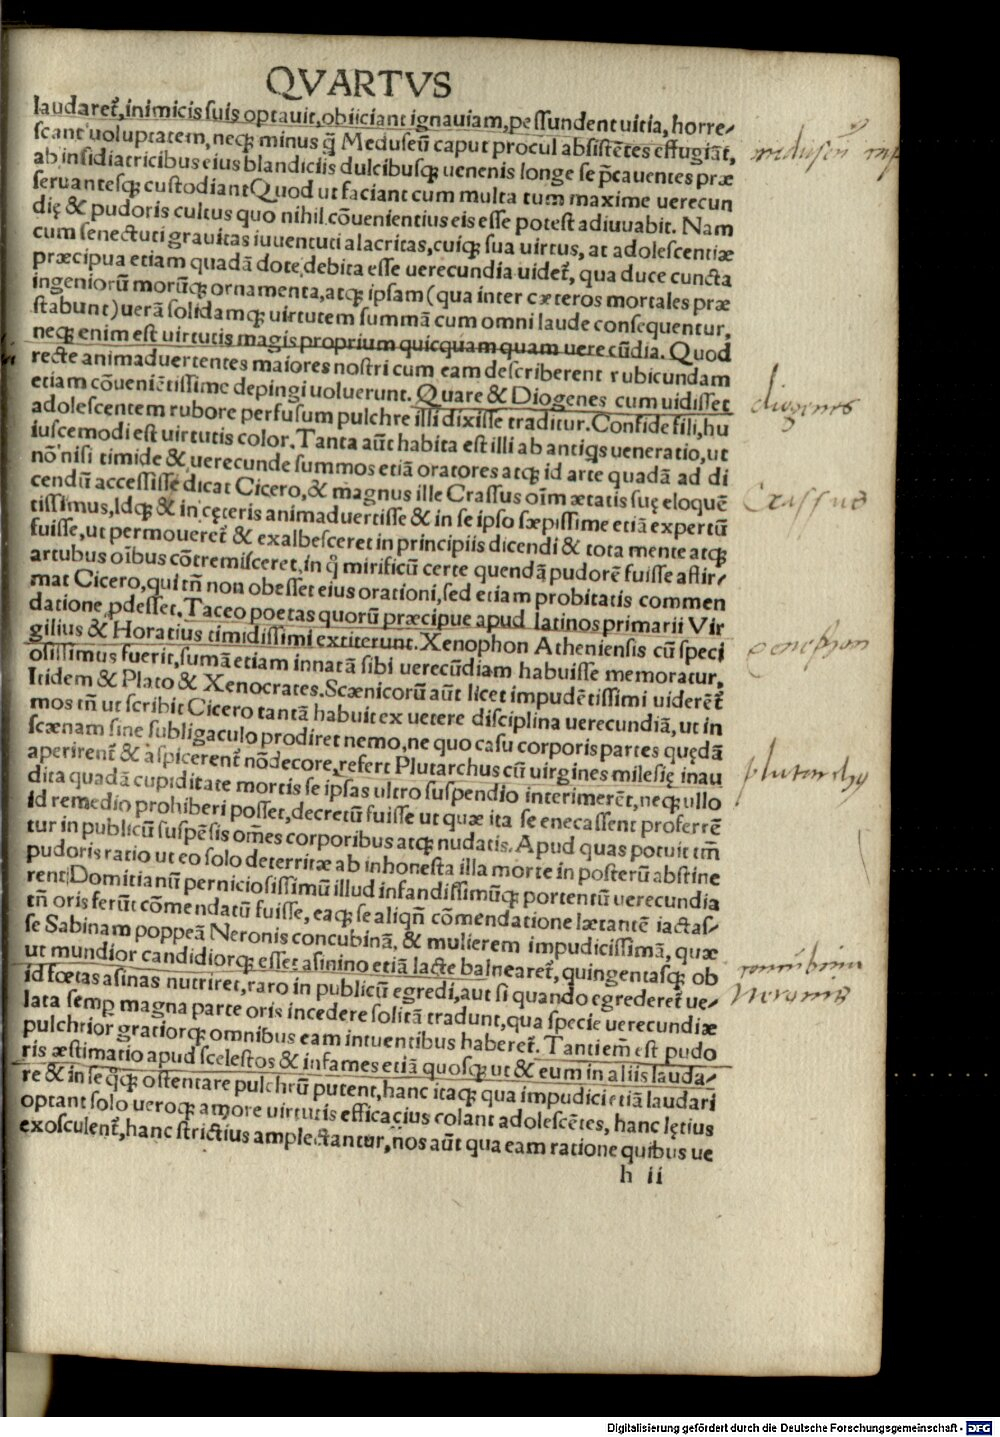 QVARTVS
laudaret᷑, inimicis suis optauit, obiiciant ignauiam, pessundent uitia, horre/
scant uoluptatem, neq; minus q̃ Meduseũ caput procul absistẽtes effugiãt,
meduseũ
ab insidiatricibus eius blandiciis dulcibusq; uenenis longe se p̃cauentes præ
seruantesq; custodiant Quod ut faciant cum multa tum maxime uerecun
dię & pudoris cultus quo nihil cõuenientius eis esse potest adiuuabit. Nam
cum senectuti grauitas iuuentuti alacritas, cuiq; sua uirtus, at adolescentiæ
præcipua etiam quadã dote, debita esse uerecundia uidet᷑, qua duce cuncta
ingeniorũ morũq; ornamenta, atq; ipsam (qua inter cæteros mortales præ
stabunt) uerã solidamq; uirtutem summã cum omni laude consequentur,
neq; enim est uirtutis magis proprium quicquam quam uerecũdia. Quod
recte animaduertentes maiores nostri cum eam describerent rubicundam
etiam cõueniẽtissime depingi uoluerunt. Quare & Diogenes cum uidisset
diogenes
adolescentem rubore perfusum pulchre illi dixisse traditur. Confide fili, hu
iuscemodi est uirtutis color. Tanta aũt habita est illi ab antiqs ueneratio, ut
nõ nisi timide & uerecunde summos etiã oratores atq; id arte quadã ad di
cendũ accessisse dicat Cicero, & magnus ille Crassus oĩm ætatis suę eloquẽ
Crassus
tissimus, Idq; & in cęteris animaduertisse & in se ipso sæpissime etiã expertũ
fuisse, ut permoueret᷑ & exalbesceret in principiis dicendi & tota mente atq;
artubus oĩbus cõtremisceret, in q̊ mirificũ certe quendã pudorẽ fuisse affir/
mat Cicero, qui tñ non obesset eius orationi, sed etiam probitatis commen
datione ꝓdesset. Taceo poetas quorũ præcipue apud latinos primarii Vir
gilius & Horatius timidissimi extiterunt. Xenophon Atheniensis cũ speci
xenophon
osissimus fuerit, sumã etiam innatã sibi uerecũdiam habuisse memoratur,
Itidem & Plato & Xenocrates. Scænicorũ aũt licet impudẽtissimi uiderẽt᷑
mos tñ ut scribit Cicero tantã habuit ex uetere disciplina uerecundiã, ut in
scænam sine subligaculo prodiret nemo, ne quo casu corporis partes quędã
aperirent᷑ & aspicerent᷑ nõ decore, refert Plutarchus cũ uirgines milesię inau
plutarchus
dita quadã cupiditate mortis se ipsas ultro suspendio interimerẽt, neq; ullo
id remedio prohiberi posset, decretũ fuisse ut quæ ita se enecassent proferrẽ
tur in publicũ suspẽsis om̃es corporibus atq; nudatis. Apud quas potuit tm̃
pudoris ratio ut eo solo deterritæ ab inhonesta illa morte in posterũ abstine
rent Domitianũ perniciosissimũ illud infandissimũq; portentũ uerecundia
tñ oris ferũt cõmendatũ fuisse, eaq; se aliqñ cõmendatione lætantẽ iactas/
se Sabinam poppeã Neronis concubinã, & mulierem impudicissimã, quæ
ut mundior candidiorq; esset asinino etiã lacte balnearet᷑, quingentasq; ob
id fœtas asinas nutriret, raro in publicũ egredi, aut si quando egrederet᷑ ue/
Neronis
lata semꝑ magna parte oris incedere solitã tradunt, qua specie uerecundiæ
pulchrior gratiorq; omnibus eam intuentibus haberet᷑. Tanti em̃ est pudo
ris æstimatio apud scelestos & infames etiã quosq; ut & eum in aliis lauda/
re & in se q̊q; ostentare pulchrũ putent, hanc itaq; qua impudici etiã laudari
optant solo ueroq; amore uirtutis efficacius colant adolescẽtes, hanc lętius
exosculent᷑, hanc strictius amplectantur, nos aũt qua eam ratione quibus ue
h ii
Digitalisierung gefördert durch die Deutsche Forschungsgemeinschaft - DFG